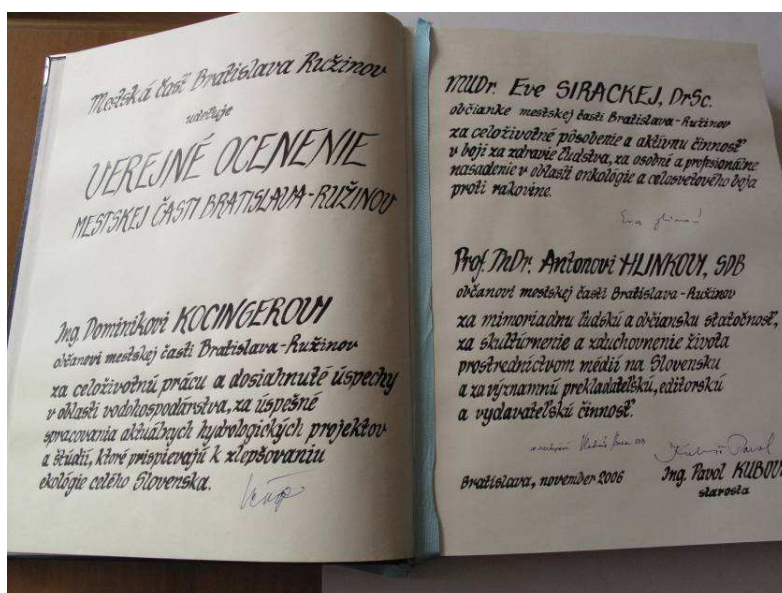 Mestská časť Bratislava Ružinov
udeľuje
VEREJNÉ OCENENIE
MESTSKEJ ČASTI BRATISLAVA-RUŽINOV
Ing. Dominikovi KOCINGEROVI
občanovi mestskej časti Bratislava-Ružinov
za celoživotnú prácu a dosiahnuté úspechy
v oblasti vodohospodárstva, za úspešné
spracovania aktuálnych hydrologických projektov
a štúdií, ktoré prispievajú k zlepšovaniu
ekológie celého Slovenska.
MUDr. Eve SIRACKEJ, DrSc.
občianke mestskej časti Bratislava-Ružinov
za celoživotné pôsobenie a aktívnu činnosť
v boji za zdravie ľudstva, za osobné a profesionálne
nasadenie v oblasti onkológie a celosvetového boja
proti rakovine.
Eva
Prof. PhDr. Antonovi HLINKOVI, SDB
občanovi mestskej časti Bratislava-Ružinov
za mimoriadnu ľudskú a občiansku statočnosť,
za skultúrnenie a zduchovnenie života
prostredníctvom médií na Slovensku
a za významnú prekladateľskú, editorskú
a vydavateľskú činnosť.
Pavol
Bratislava, november 2006
Ing. Pavol KUBOVI
starosta